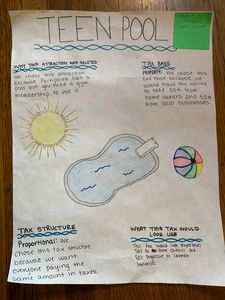 TEEN POOL
WHY THIS ATTRACTION WAS NEEDED
We chose this attraction
because Farmpoint has a
pool but you need a gym
membership to use it.
TAX BASE
PROPERTY: We chose this
tax base because we
would have the ability
to take 50% from
home owners and 50%
from local businesses.
TAX STRUCTURE
Proportional: We
chose this tax structure
because we want
everyone paying the
same amount in taxes.
WHAT THIS TAX WOULD
LOOK LIKE
This tax would look
to home owners and
to
business